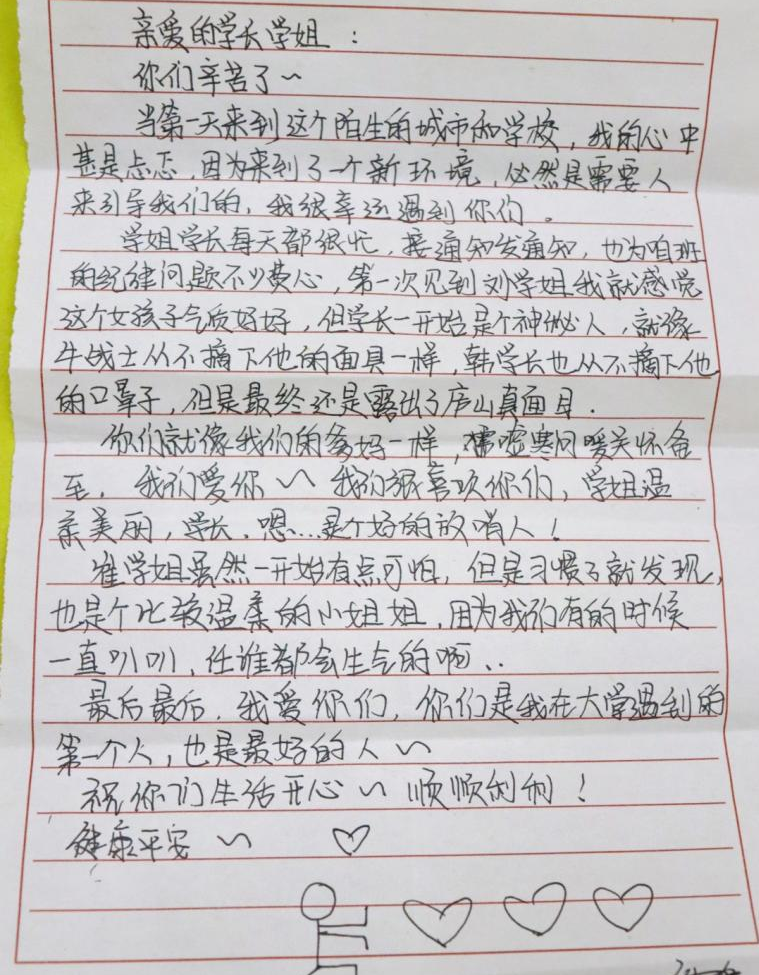 亲爱的学长学姐：
你们辛苦了~
当第一天来到这个陌生的城市和学校，我的心中
甚是忐忑，因为来到了一个新环境，必然是需要人
来引导我们的，我很幸运遇到你们。
学姐学长每天都很忙，接通知发通知，也为咱班
的纪律问题不少费心，第一次见到刘学姐我就感觉
这个女孩子气质好好，但学长一开始是个神秘人，就像
牛战士从不摘下他的面具一样，韩学长也从不摘下他
的口罩子，但是最终还是露出了庐山真面目.
你们就像我们的爹妈一样，嘘寒问暖关怀备
至，我们爱你~我们很喜欢你们，学姐温
柔美丽，学长，嗯...是个好的放哨人！
崔学姐虽然一开始有点可怕，但是习惯了就发现，
也是个比较温柔的小姐姐，因为我们有的时候
一直叭叭，任谁都会生气的啊..
最后最后，我爱你们，你们是我在大学遇到的
第一个人，也是最好的人~
祝你们生活开心~顺顺利利！
健康平安~